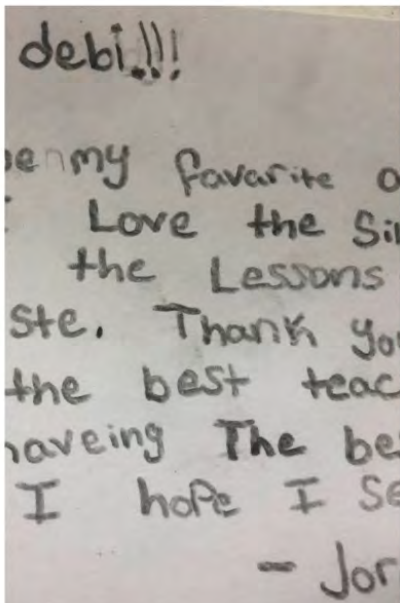 debi!!!
my favarite
Love the
the Lessons
ste. Thank
the best
haveing The
I hope I
- Jor